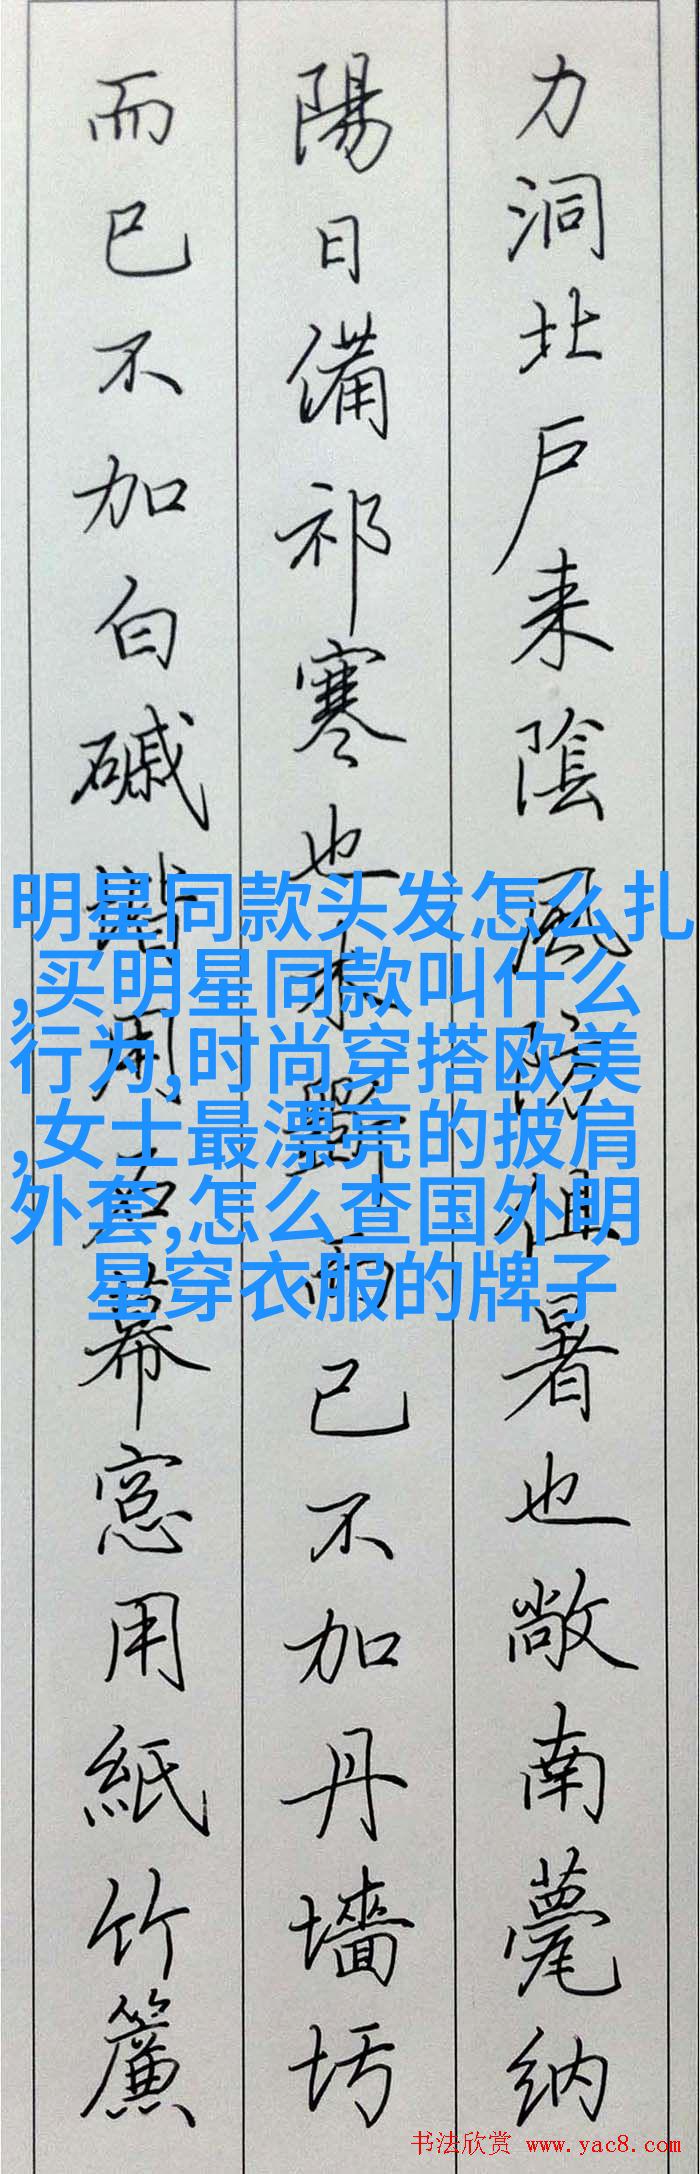 力洞北戶来陰風防徂暑也敞南甍納
陽日備祁寒也木斲而已不加丹墻圬
而已不加白磩階用石幕窓用紙竹簾
明星同款头发怎么扎
,买明星同款叫什么
行为,时尚穿搭欧美
,女士最漂亮的披肩
外套,怎么查国外明
星穿衣服的牌子
书法欣赏 www.yac8.com